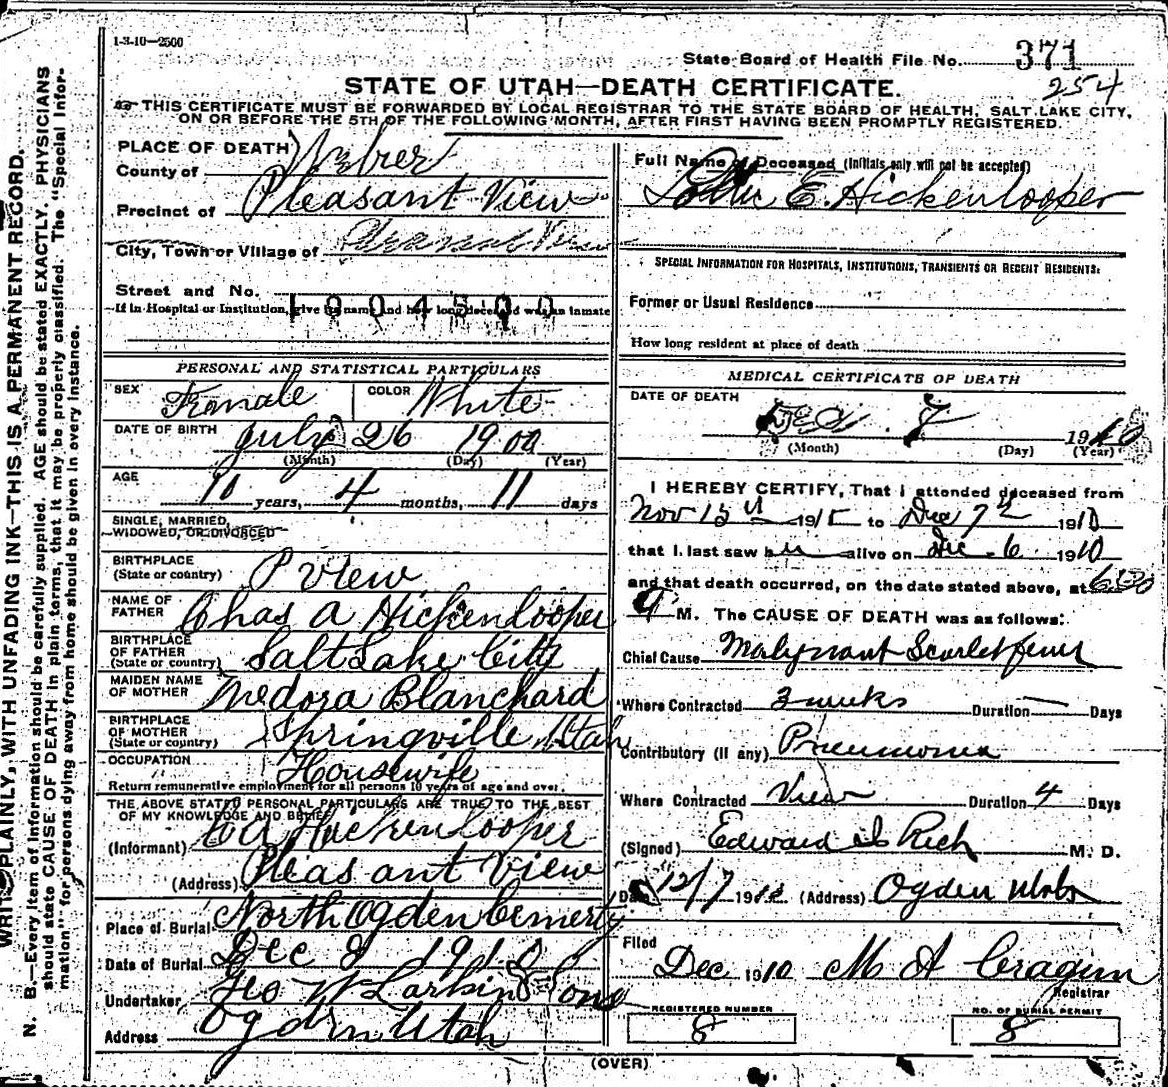 1-3-10—2500
State Board of Health File No. 371
254
STATE OF UTAH—DEATH CERTIFICATE.
THIS CERTIFICATE MUST BE FORWARDED BY LOCAL REGISTRAR TO THE STATE BOARD OF HEALTH, SALT LAKE CITY,
ON OR BEFORE THE 5TH OF THE FOLLOWING MONTH, AFTER FIRST HAVING BEEN PROMPTLY REGISTERED.
WRITE PLAINLY, WITH UNFADING INK—THIS IS A PERMANENT RECORD.
N. B.—Every item of information should be carefully supplied. AGE should be stated EXACTLY. PHYSICIANS
should state CAUSE OF DEATH in plain terms, that it may be properly classified. The "Special Infor-
mation" for persons dying away from home should be given in every instance.
PLACE OF DEATH
County of Weber
Precinct of Pleasant View
City, Town or Village of Pleasant View
Street and No.
1904500
If in Hospital or Institution, give its name and how long deceased was an inmate
PERSONAL AND STATISTICAL PARTICULARS
SEX Female COLOR White
DATE OF BIRTH July 26 1900
(Month) (Day) (Year)
AGE
10 years, 4 months, 11 days
SINGLE, MARRIED,
WIDOWED, OR DIVORCED
BIRTHPLACE
(State or country) P View
NAME OF
FATHER Chas A Hickenlooper
BIRTHPLACE
OF FATHER
(State or country) Salt Lake City
MAIDEN NAME
OF MOTHER Medora Blanchard
BIRTHPLACE
OF MOTHER
(State or country) Springville, Utah
OCCUPATION Housewife
Return remunerative employment for all persons 10 years of age and over.
THE ABOVE STATED PERSONAL PARTICULARS ARE TRUE TO THE BEST
OF MY KNOWLEDGE AND BELIEF
(Informant) C A Hickenlooper
(Address) Pleasant View
Place of Burial North Ogden Cemerty
Date of Burial Dec 8 1910
Undertaker Geo W Larkin & Sons
Address Ogden Utah
Full Name of Deceased (Initials only will not be accepted)
E. Hickenlooper
SPECIAL INFORMATION FOR HOSPITALS, INSTITUTIONS, TRANSIENTS OR RECENT RESIDENTS:
Former or Usual Residence
How long resident at place of death
MEDICAL CERTIFICATE OF DEATH
DATE OF DEATH
Dec. 7 1910
(Month) (Day) (Year)
I HEREBY CERTIFY, That I attended deceased from
Nov 15 191 to Dec 7 1910
that I last saw her alive on Dec. 6 1910
and that death occurred, on the date stated above, at 6:30
a M. The CAUSE OF DEATH was as follows:
Chief Cause Malignant Scarlet fever
Where Contracted 3 weeks Duration — Days
Contributory (if any) Pneumonia
Where Contracted View Duration 4 Days
(Signed) Edward I Rich M. D.
Date 12/7 191 (Address) Ogden Utah
Filed
Dec 1910 M A Cragun
Registrar
REGISTERED NUMBER
8
NO. OF BURIAL PERMIT
8
(OVER)